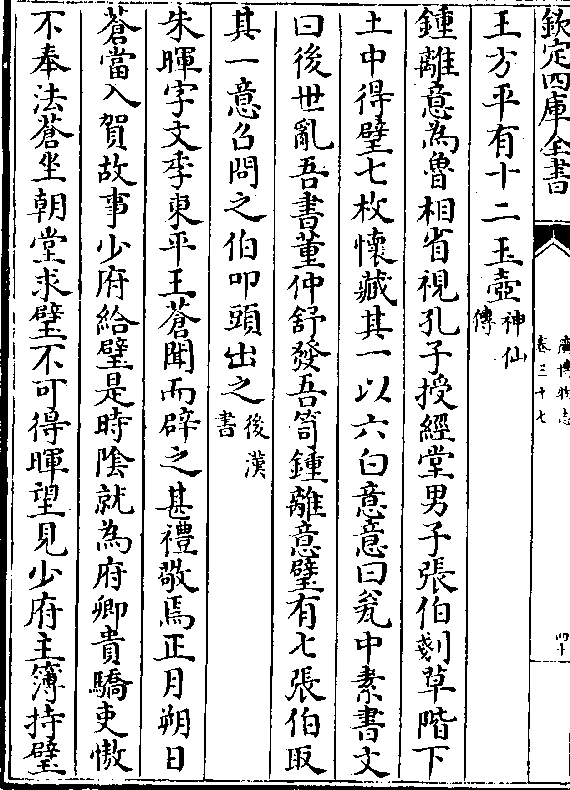 欽定四庫全書
廣博物志
卷三十七
四十
王方平有十二玉壺神仙傳
鍾離意為魯相省視孔子授經堂男子張伯剗草階下
土中得璧七枚懷藏其一以六白意意曰瓮中素書文
曰後世亂吾書董仲舒發吾笥鍾離意璧有七張伯取
其一意召問之伯叩頭出之後漢書
朱暉字文季東平王蒼聞而辟之甚禮敬焉正月朔日
蒼當入賀故事少府給璧是時陰就為府卿貴驕吏慠
不奉法蒼坐朝堂求璧不可得暉望見少府主簿持璧